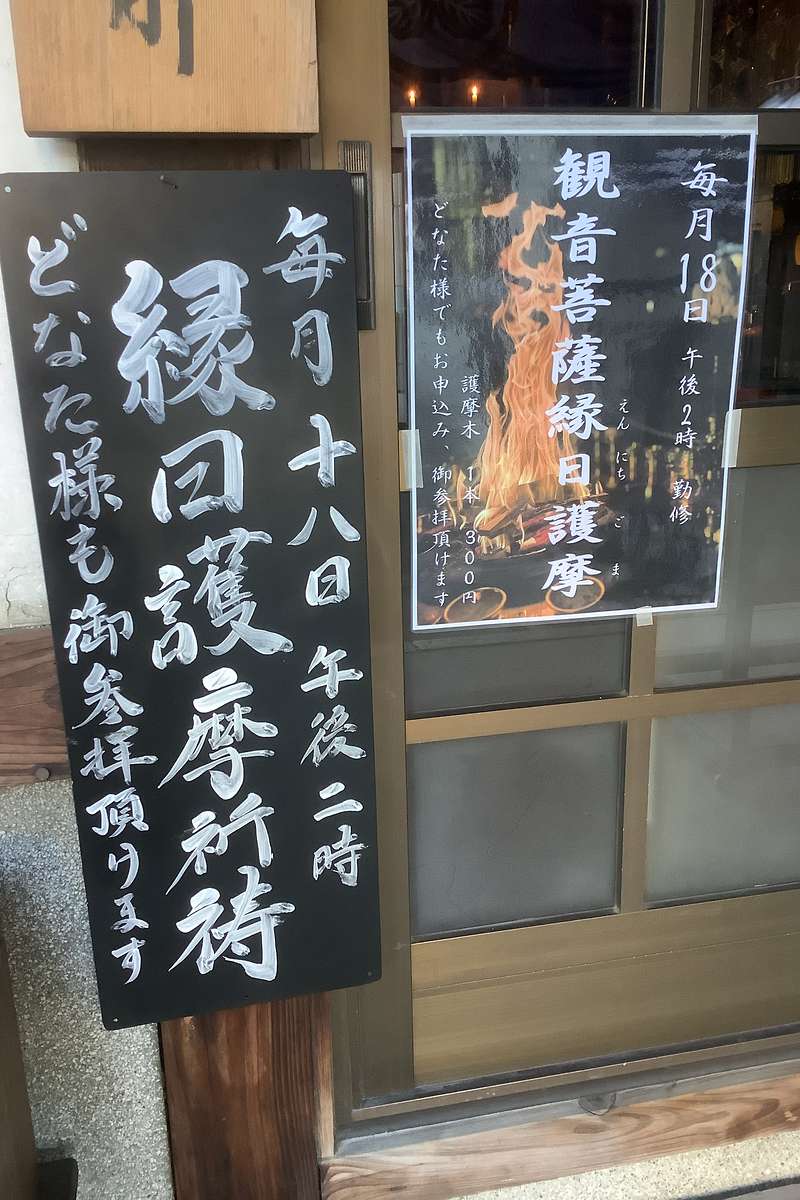 毎月十八日 午後二時
縁日護摩祈祷
どなた様も御参拝頂けます
毎月18日 午後2時 勤修
観音菩薩縁日護摩
えん にち ご ま
護摩木 1本 300円
どなた様でもお申込み、御参拝頂けます